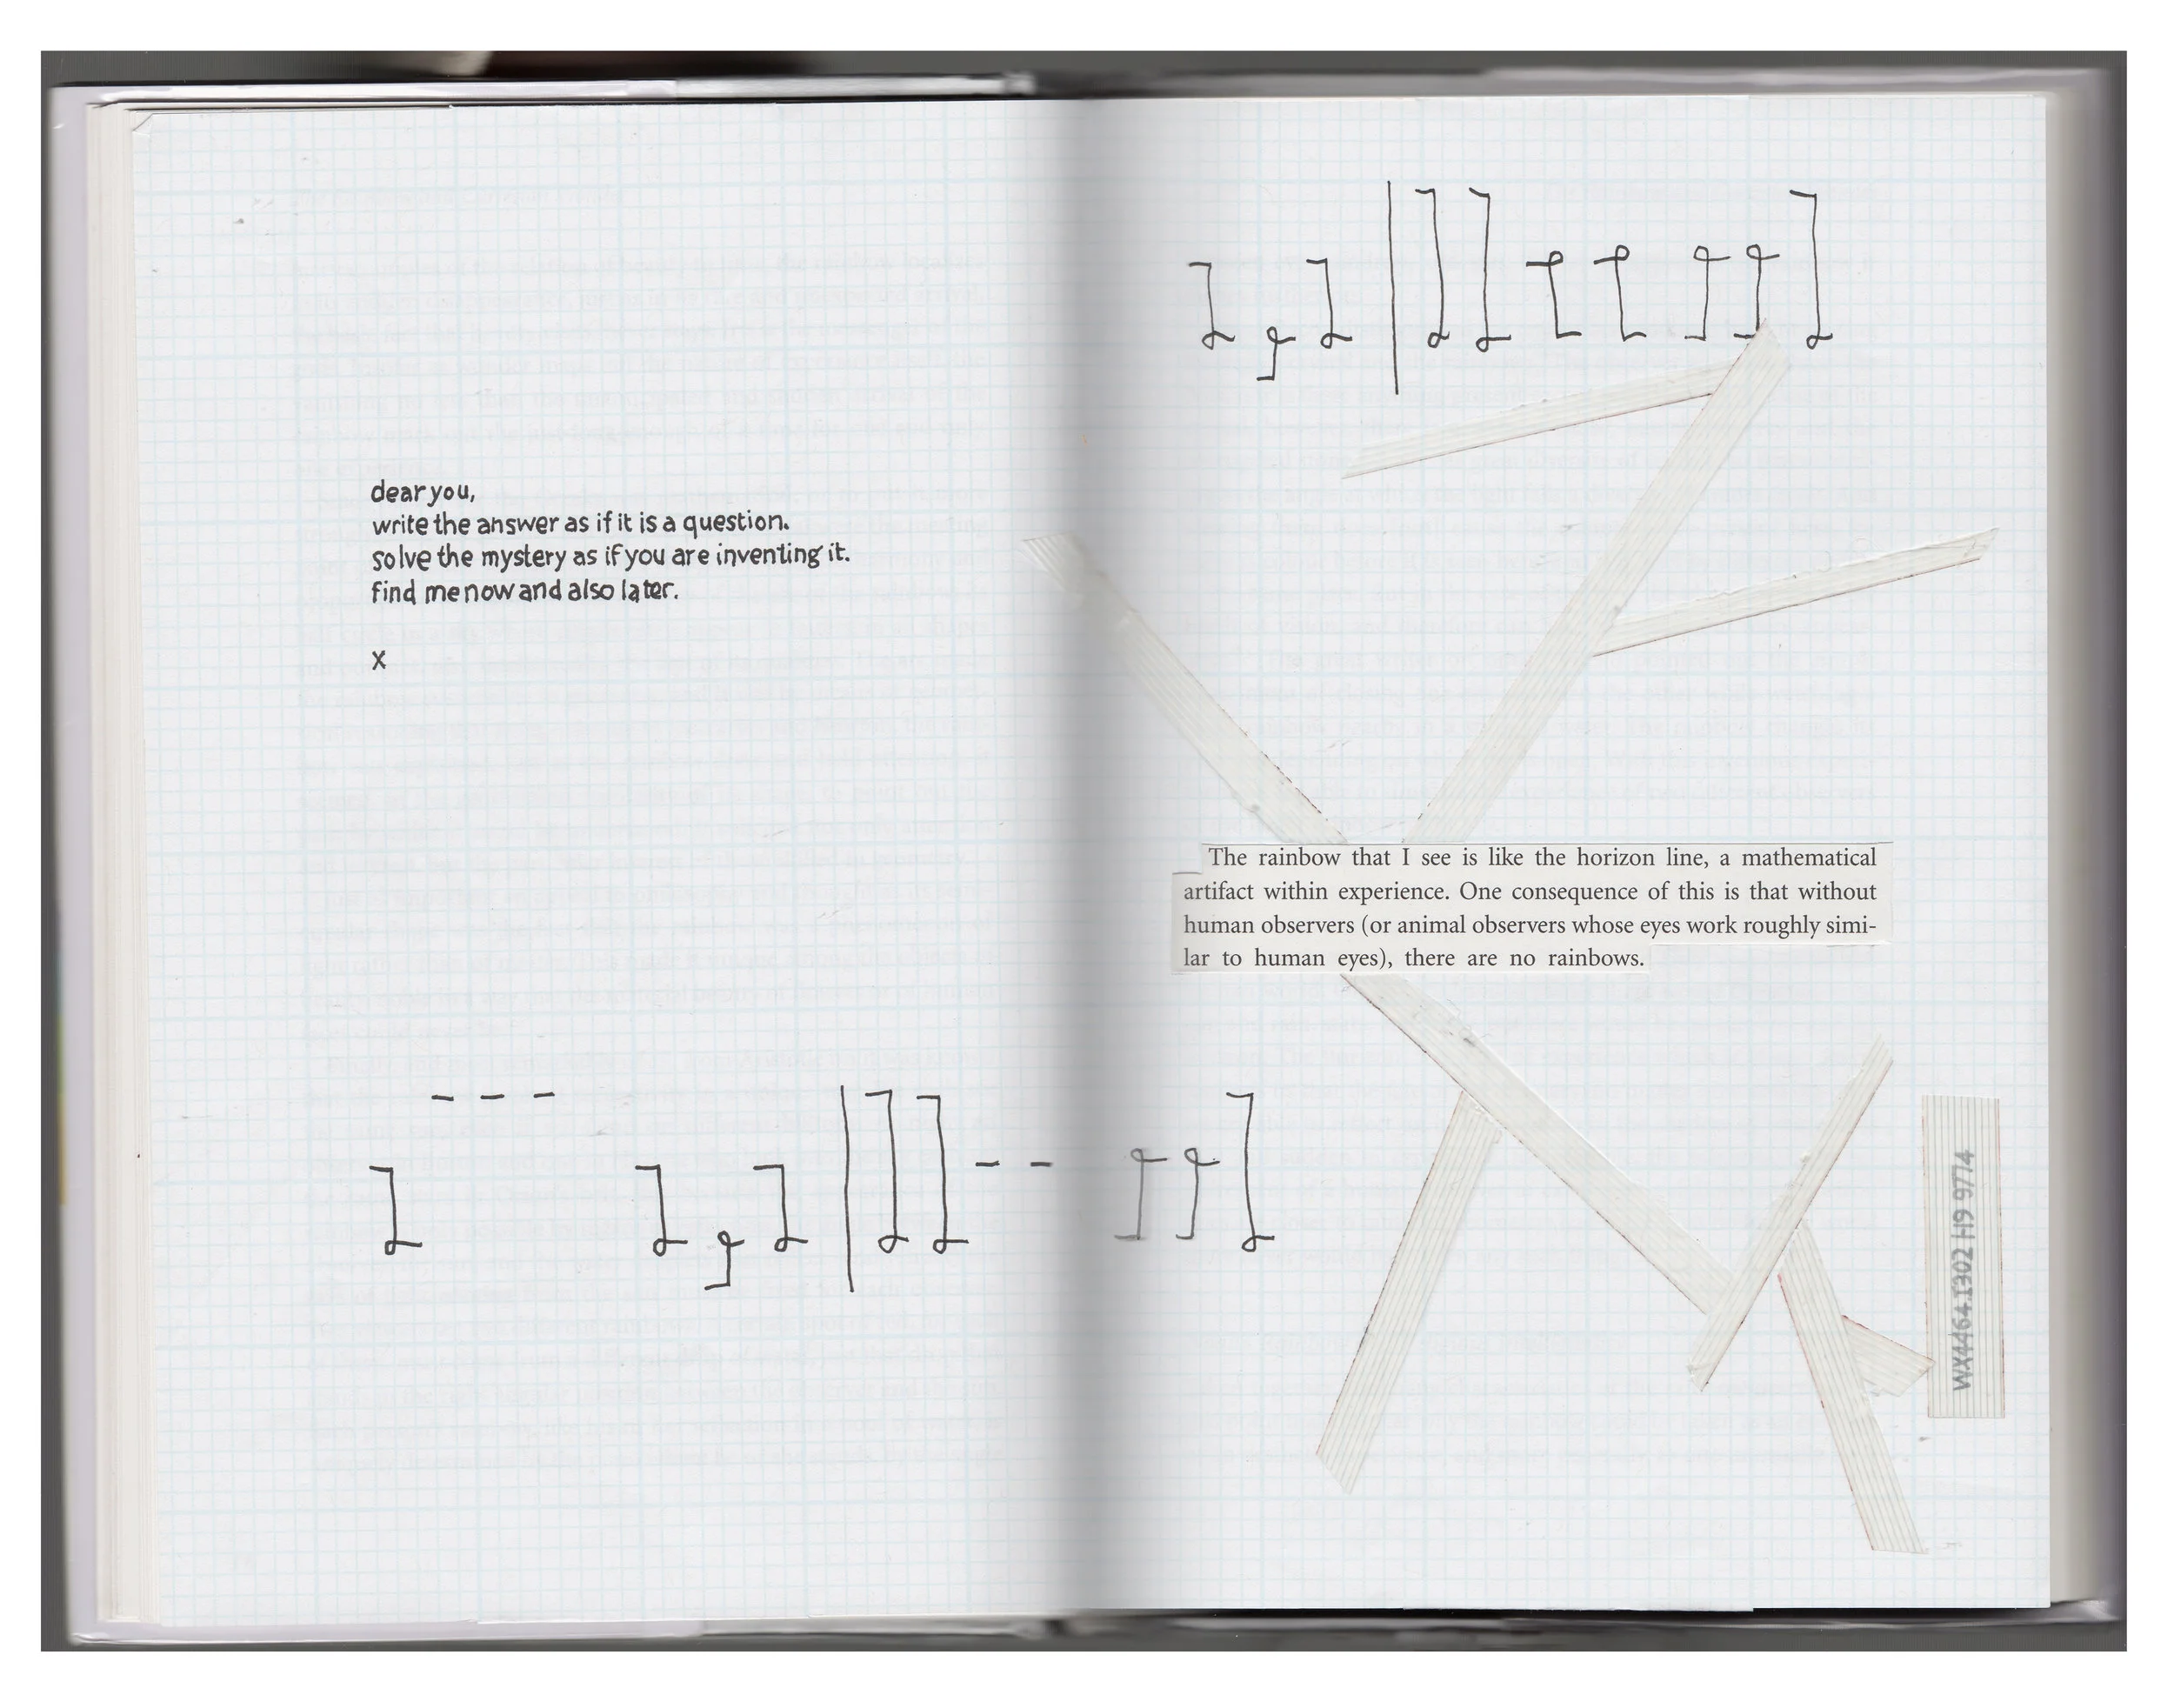 dear you,
write the answer as if it is a question.
solve the mystery as if you are inventing it.
find me now and also later.
x
The rainbow that I see is like the horizon line, a mathematical
artifact within experience. One consequence of this is that without
human observers (or animal observers whose eyes work roughly simi-
lar to human eyes), there are no rainbows.
WX446.I302 H9 9774